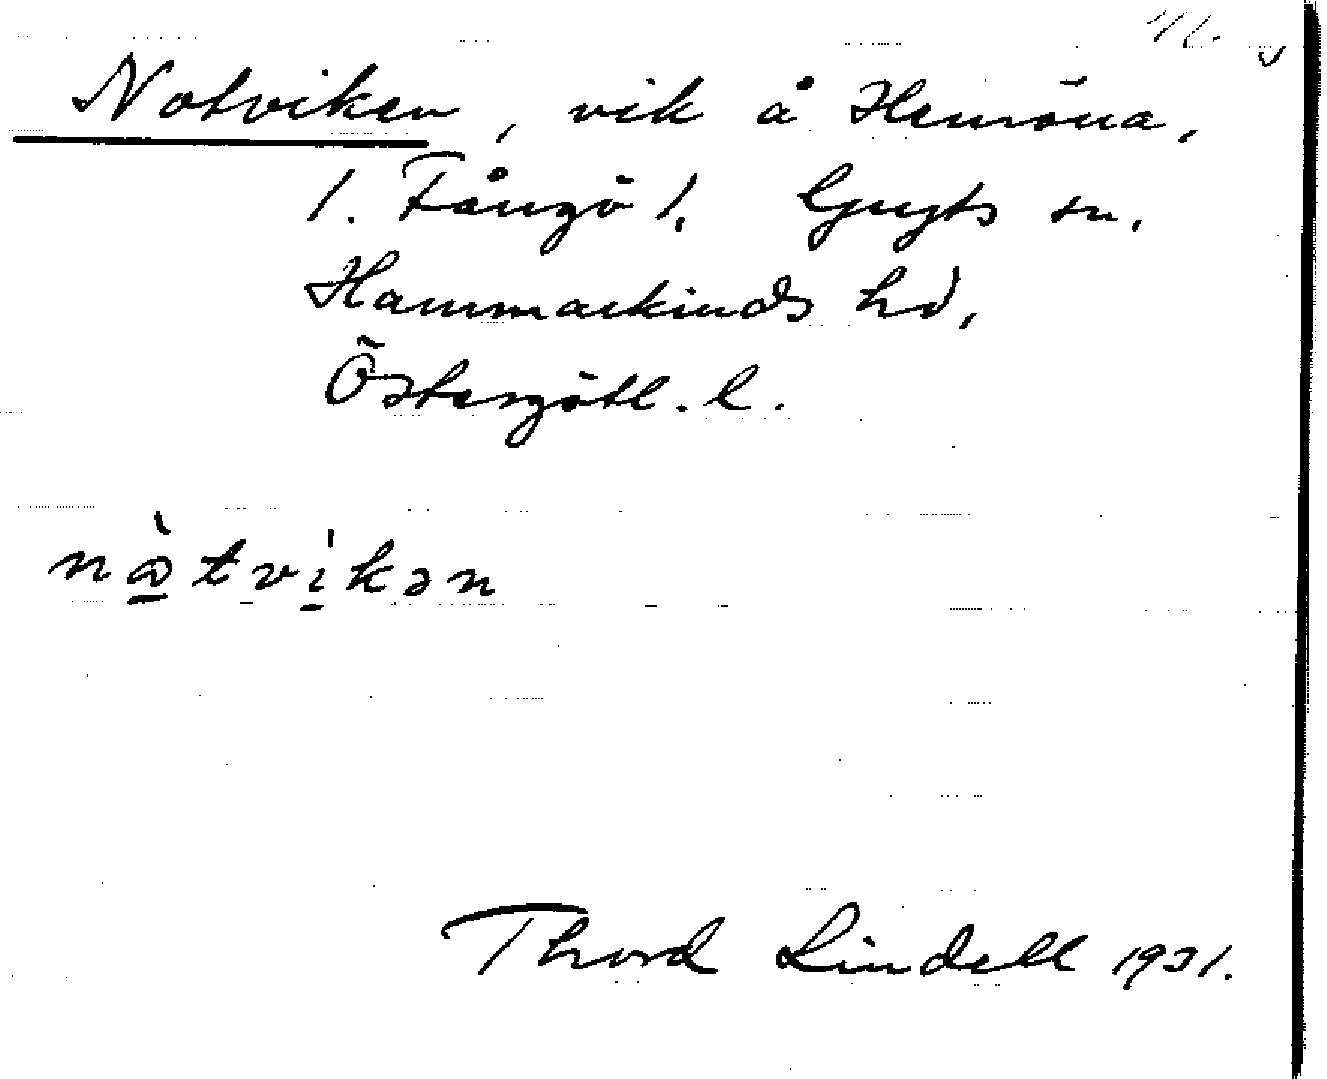 Notviken, vik å Hemröna,
1. Fångö 1, Gryts sn,
Hammarkinds hd,
Östergötl. l.
nὰtvi̍kən
Thord Lindell 1931.